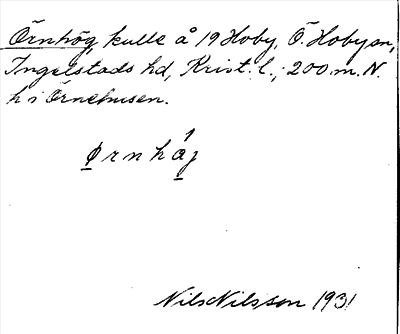 Örnhög, kulle å 19 Hoby, Ö. Hoby sn,
Ingelstads hd, Krist. l.; 200 m. N.
h i Örnehusen.
ørnhåg
Nils Nilsson 1931